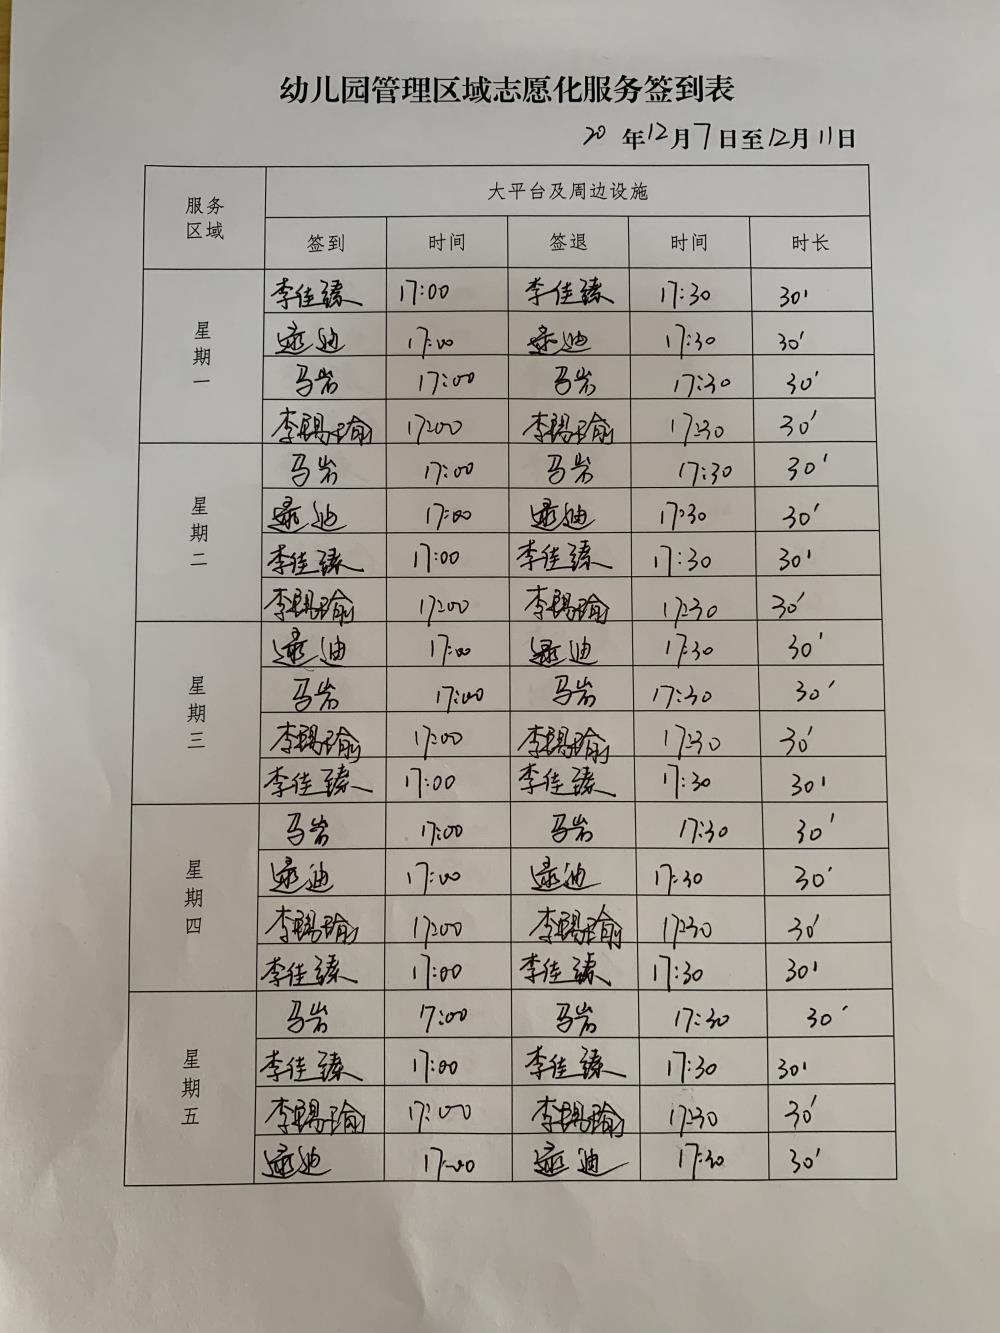 幼儿园管理区域志愿化服务签到表
20 年12月7日至12月11日
服务区域 大平台及周边设施
签到 时间 签退 时间 时长
星期一
李佳臻 17:00 李佳臻 17:30 30'
迪 17:00 迪 17:30 30'
马岩 17:00 马岩 17:30 30'
李锡瑜 17:00 李锡瑜 17:30 30'
星期二
马岩 17:00 马岩 17:30 30'
迪 17:00 迪 17:30 30'
李佳臻 17:00 李佳臻 17:30 30'
李锡瑜 17:00 李锡瑜 17:30 30'
星期三
迪 17:00 迪 17:30 30'
马岩 17:00 马岩 17:30 30'
李锡瑜 17:00 李锡瑜 17:30 30'
李佳臻 17:00 李佳臻 17:30 30'
星期四
马岩 17:00 马岩 17:30 30'
迪 17:00 迪 17:30 30'
李锡瑜 17:00 李锡瑜 17:30 30'
李佳臻 17:00 李佳臻 17:30 30'
星期五
马岩 17:00 马岩 17:30 30'
李佳臻 17:00 李佳臻 17:30 30'
李锡瑜 17:00 李锡瑜 17:30 30'
迪 17:00 迪 17:30 30'